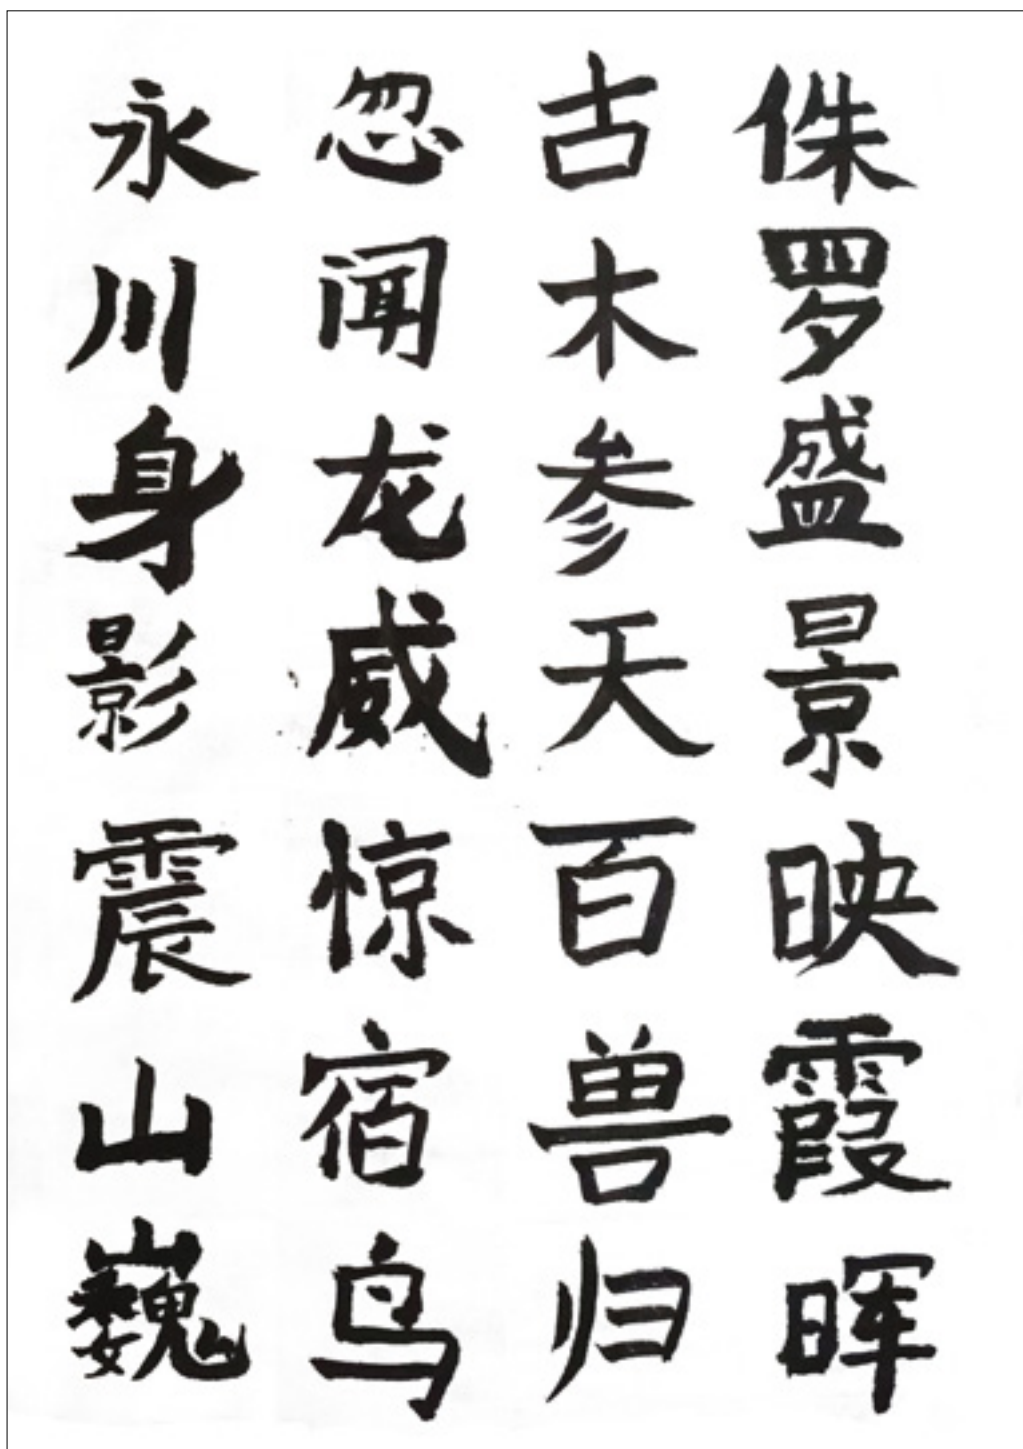 侏罗盛景映霞晖
古木参天百兽归
忽闻龙威惊宿鸟
永川身影震山巍